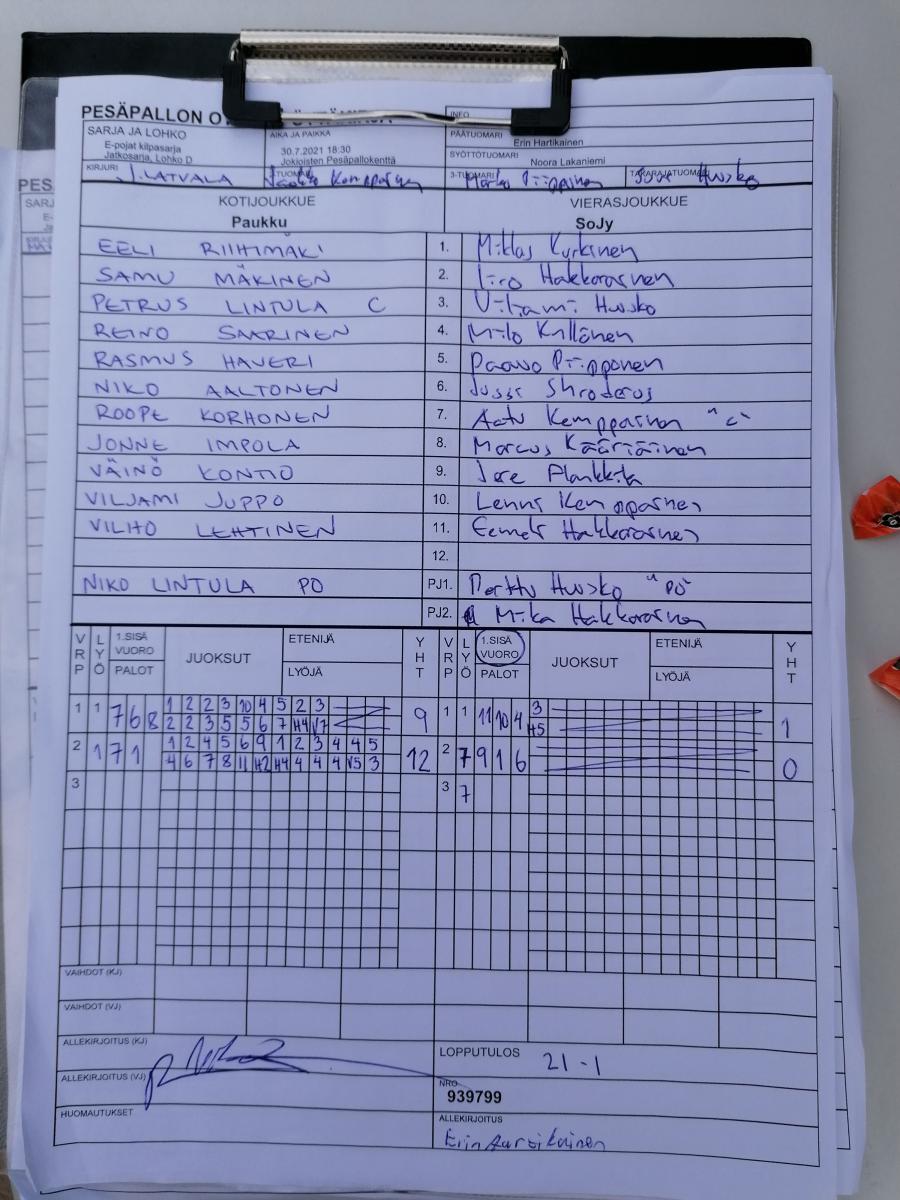 PESÄPALLON O
INFO
SARJA JA LOHKO
E-pojat kilpasarja
Jatkosarja, Lohko D
AIKA JA PAIKKA
30.7.2021 18:30
Jokioisten Pesäpallokenttä
PÄÄTUOMARI
Erin Hartikainen
SYÖTTÖTUOMARI
Noora Lakaniemi
KIRJURI J. LATVALA Kemppainen 3-TUOMARI Marko Piipponen TAKARAJATUOMARI Huusko
KOTIJOUKKUE VIERASJOUKKUE
Paukku SoJy
EELI RIIHIMÄKI 1. Miklas Kurkinen
SAMU MÄKINEN 2. Iiro Hakkarainen
PETRUS LINTULA C 3. Viljami Huusko
REINO SAARINEN 4. Milo Kyllönen
RASMUS HAVERI 5. Paavo Piipponen
NIKO AALTONEN 6. Jussi Shroderus
ROOPE KORHONEN 7. Aatu Kemppainen "C"
JONNE IMPOLA 8. Marcus Kääriäinen
VÄINÖ KONTIO 9. Jere Plankkila
VILJAMI JUPPO 10. Lenni Kemppainen
VILHO LEHTINEN 11. Eemeli Hakkarainen
12.
NIKO LINTULA PO PJ1. Huusko "PO"
PJ2. Mika Hakkarainen
VRP LYÖ 1.SISÄ VUORO PALOT JUOKSUT ETENIJÄ LYÖJÄ YHT VRP LYÖ 1.SISÄ VUORO PALOT JUOKSUT ETENIJÄ LYÖJÄ YHT
1 1 7 6 8 1 2 2 3 10 4 5 2 3 9 1 1 11 10 4 3 1
2 2 3 5 5 6 7 H4 V7 H5
2 1 7 1 1 2 4 5 6 9 1 2 3 4 4 5 12 2 7 9 1 6 0
4 6 7 8 11 H2 H4 4 4 4 V5 3
3 3 7
VAIHDOT (KJ)
VAIHDOT (VJ)
ALLEKIRJOITUS (KJ)
LOPPUTULOS 21-1
ALLEKIRJOITUS (VJ)
NRO
939799
HUOMAUTUKSET
ALLEKIRJOITUS
Erin Hartikainen